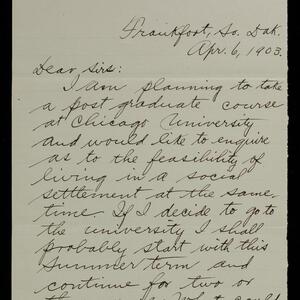 Frankfort, So. Dak.
Apr. 6, 1903.
Dear Sirs:
I am planning to take
a post graduate course
at Chicago University
and would like to enquire
as to the feasibility of
living in a social
settlement at the same
time. If I decide to go to
the university I shall
probably start with this
Summer term and
continue for two or